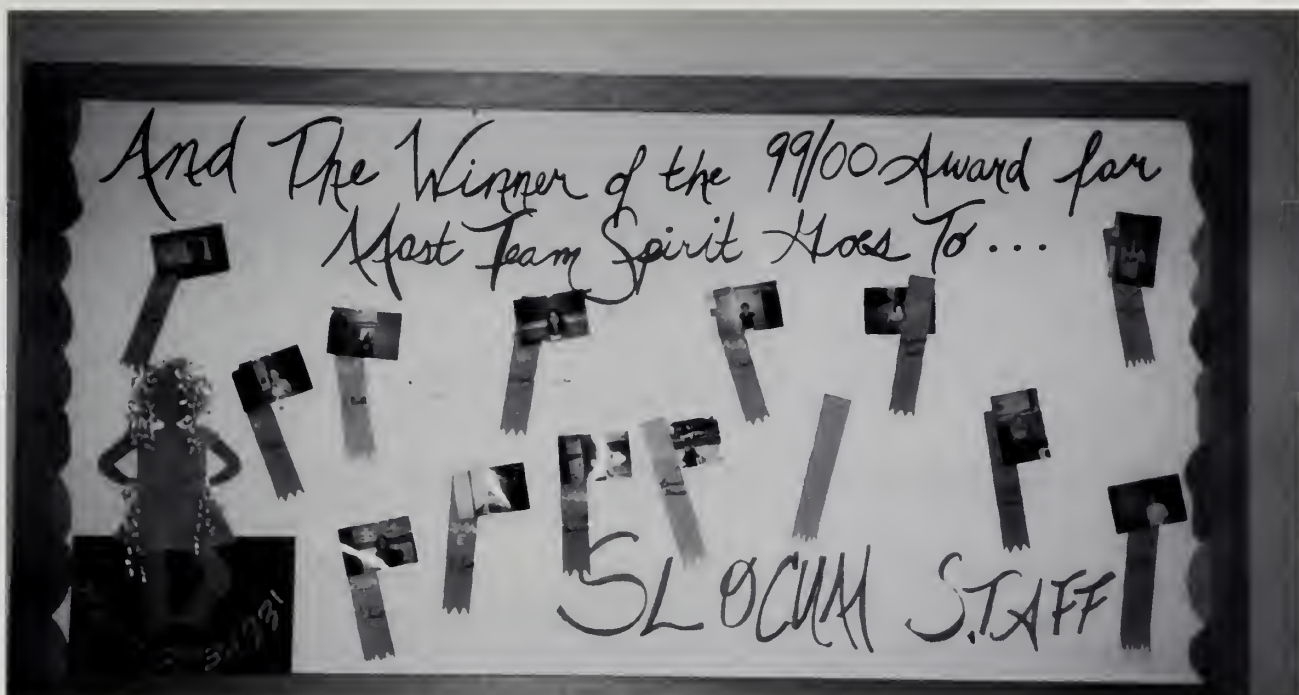 And The Winner of the 99/00 Award for
Most Team Spirit Goes To...
SLOCUM STAFF